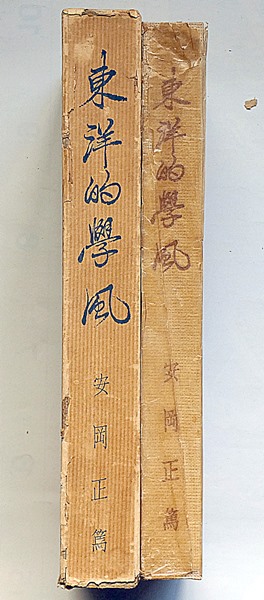 東洋的學風
安岡正篤
東洋的學風
安岡正篤